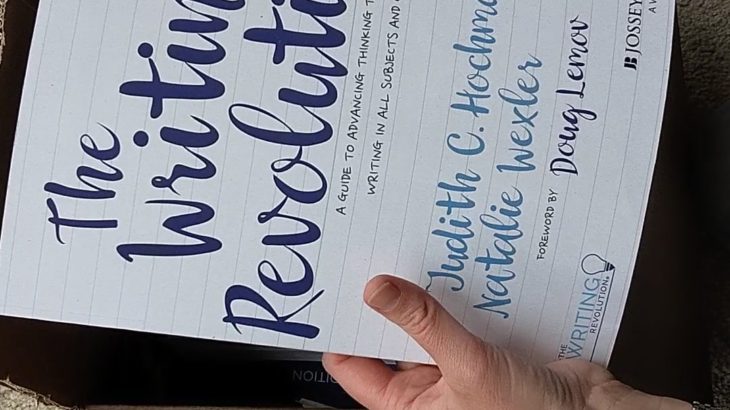 The
Writin
Revoluti
A GUIDE TO ADVANCING THINKING T
WRITING IN ALL SUBJECTS AND
Judith C. Hochma
Natalie Wexler
FOREWORD BY Doug Lemov
THE
WRITING
REVOLUTION
JB JOSSEY
A W
DITION